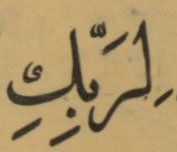 لِرَبِّكِ